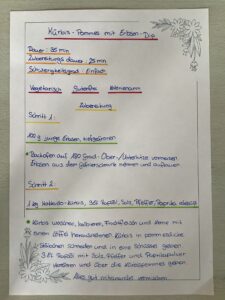 Kürbis - Pommes mit Erbsen - Dip
Dauer: 35 min
Zubereitungsdauer: 25 min
Schwierigkeitsgrad: Einfach
Vegetarisch Glutenfrei Kalorienarm
Zubereitung
Schritt 1:
100 g junge Erbsen, tiefgefroren
Backofen auf 180 Grad Ober-/Unterhitze vorheizen.
Erbsen aus dem Gefrierschrank nehmen und auftauen
Schritt 2:
1 kg Hokkaido-Kürbis, 3 EL Rapsöl, Salz, Pfeffer, Paprika edelsüß
Kürbis waschen, halbieren, Fruchtfleisch und Kerne mit
einem Löffel herausnehmen. Kürbis in pommesdicke
Stäbchen schneiden und in eine Schüssel geben.
3 EL Rapsöl mit Salz, Pfeffer und Paprikapulver
verrühren und über die Kürbispommes geben.
Alles gut miteinander vermischen